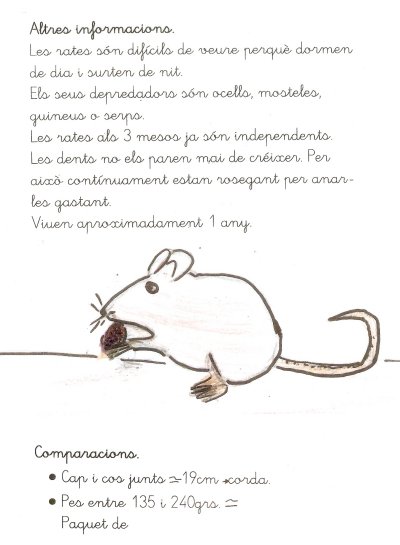 Altres informacions.
Les rates són difícils de veure perquè dormen
de dia i surten de nit.
Els seus depredadors són ocells, mosteles,
guineus o serps.
Les rates als 3 mesos ja són independents.
Les dents no els paren mai de créixer. Per
això contínuament estan rosegant per anar-
les gastant.
Viuen aproximadament 1 any.
Comparacions.
• Cap i cos junts ≃19cm →corda.
• Pes entre 135 i 240grs. ≃
Paquet de